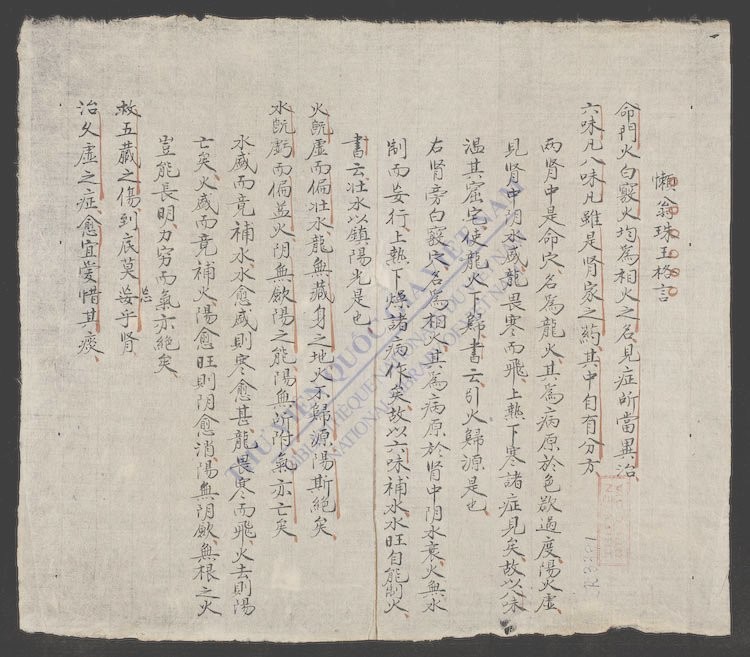 懶翁珠玉格言
命門火白竅火均為相火之名見症所當異治
六味凡八味凡雖是肾家之药其中自有分方
兩肾中是命穴名為龍火其為病原於色欲過度陽火虛
見肾中阴水盛龍畏寒而飛上热下寒諸症見矣故以八味
温其窟宅使龍火下歸書云引火歸源是也
右肾旁白竅穴名為相火其為病原於肾中阴水衰火無水
制而妄行上热下燥諸病作矣故以六味補水水旺自能制火
書云壮水以鎮陽光是也
火既虛而偏壮水龍無藏身之地火不歸源陽斯絕矣
水既虧而偏益火阴無歛陽之能陽無所附氣亦亡矣
水盛而竟補水水愈盛則寒愈甚龍畏寒而飛火去則陽
亡矣火盛而竟補火陽愈旺則阴愈消陽無阴歛無根之火
豈能長明力穷而氣亦絕矣
救五藏之傷到底莫妄乎肾
忘
治久虛之症愈宜愛惜其痰
THƯ VIỆN QUỐC GIA VIỆT NAM
BIBLIOTHÈQUE NATIONALE DU VIETNAM
NATIONAL LIBRARY OF VIETNAM